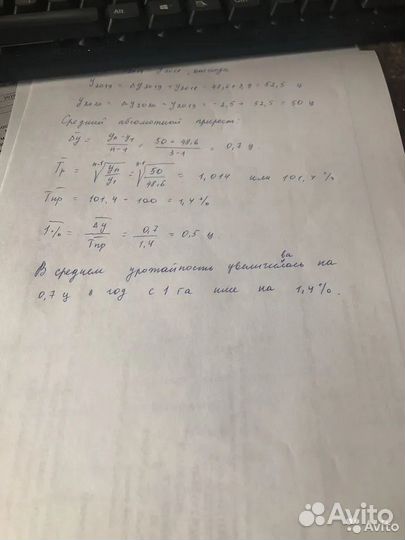 y2019 = Δy2019 + y2018 = 48,6 + 3,9 = 52,5 ц
y2020 = Δy2020 + y2019 = -2,5 + 52,5 = 50 ц
Средний абсолютной прирост:
Δy = yn - y1 / n-1 = 50 - 48,6 / 3-1 = 0,7 ц.
Tр = n-1√yn/y1 = n-1√50/48,6 = 1,014 или 101,4 %
Tпр = 101,4 - 100 = 1,4 %
1% = Δy / Tпр = 0,7 / 1,4 = 0,5 ц.
В среднем урожайность увеличилась на
0,7 ц в год с 1 га или на 1,4 %.
Avito
Avito